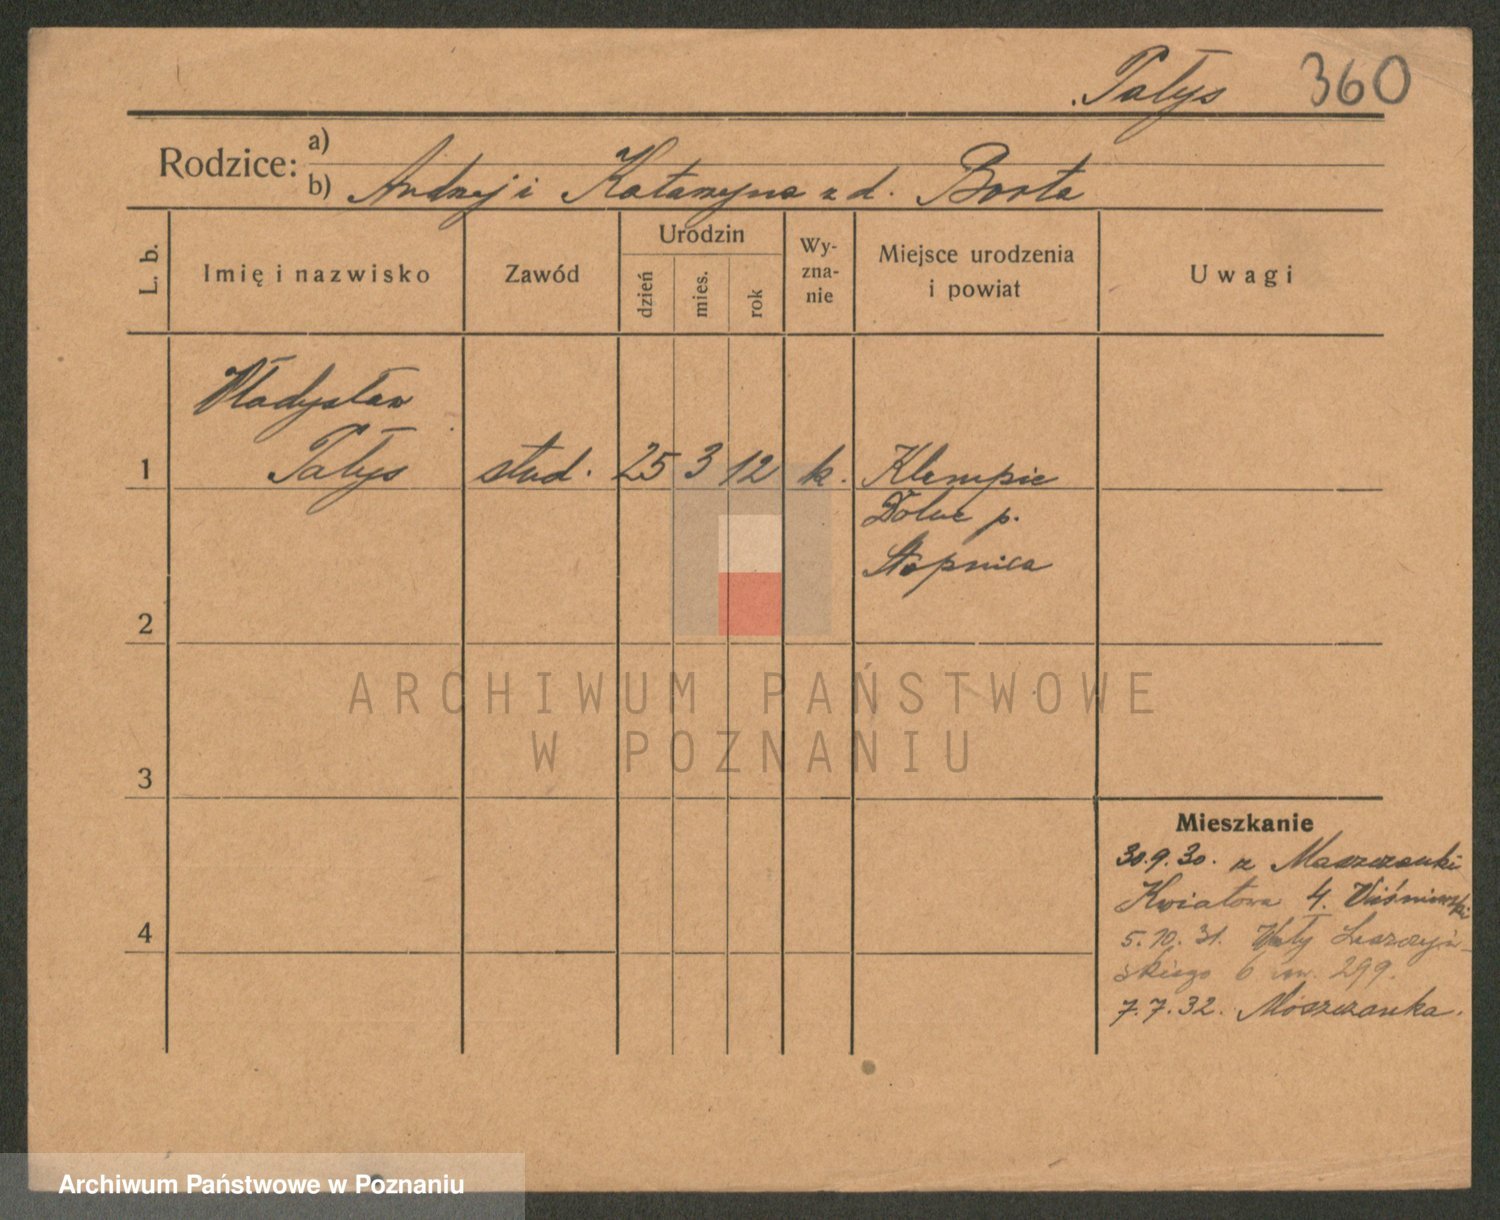 Pałys 360
Rodzice: a)
b) Andrzej i Katarzyna z d. Borta
L. b. Imię i nazwisko Zawód Urodzin dzień mies. rok Wy-zna-nie Miejsce urodzenia i powiat Uwagi
Władysław
1 Pałys stud. 25 3 12 k. Klempie
Dolne p.
Stopnica
2
ARCHIWUM PAŃSTWOWE
W POZNANIU
3
Mieszkanie
30.9.30. z Moszczanki
Kwiatowa 4. Wiśniewski
4
5.10.31. Wały Leszczyń-
skiego 6 m. 299.
7.7.32. Moszczanka.
Archiwum Państwowe w Poznaniu